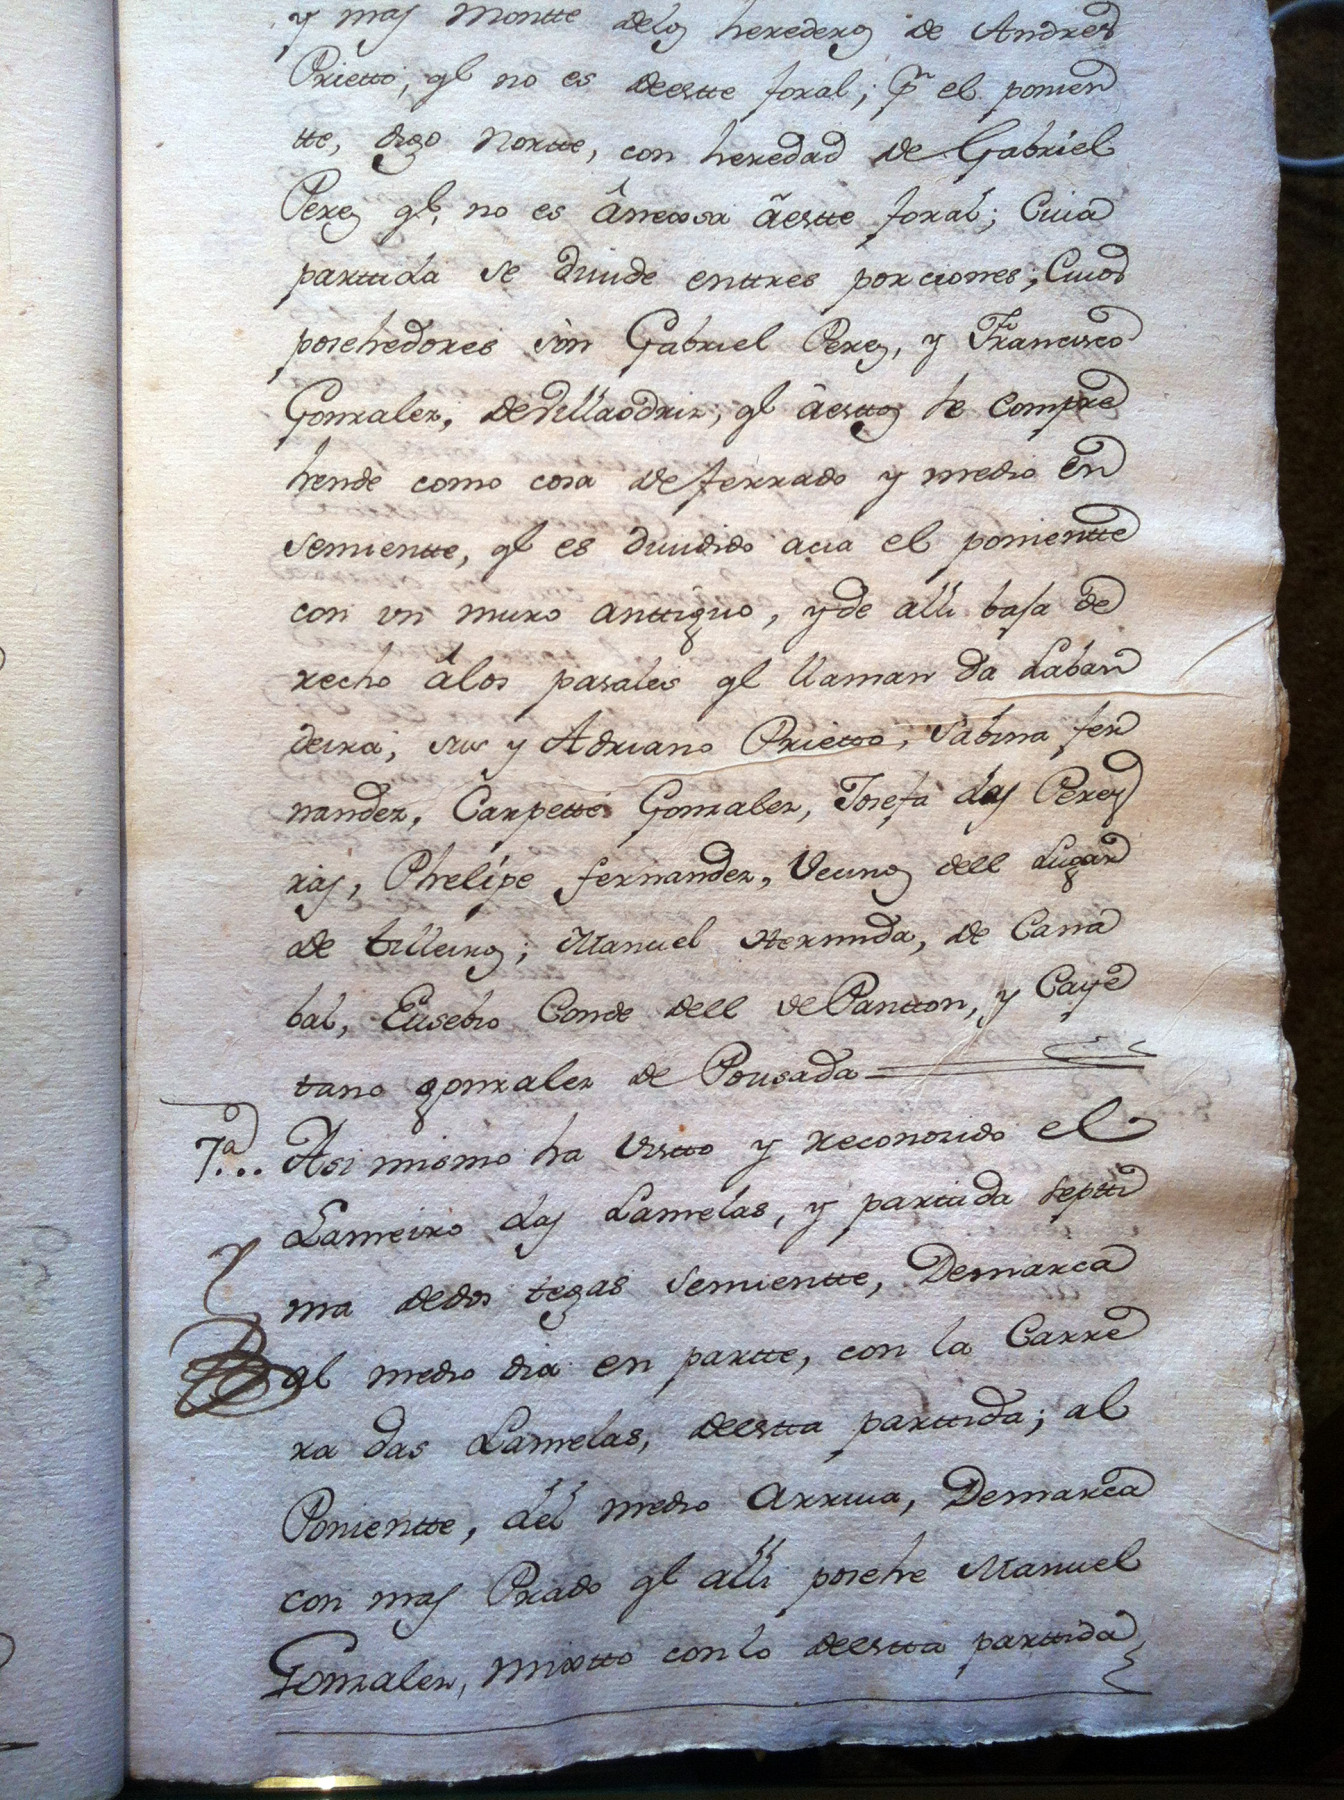 y mas Montte delos herederos de Andres
Prietto, ql no es deestte foral; pr el ponien
tte, digo Nortte, con heredad de Gabriel
Perez ql, no es ânnexa âestte foral; Cuia
parttida se diuide enttres porciones; Cuios
posehedores són Gabriel Perez, y Francisco
Gonzalez, deVillaódriz, ql âesttos se Compre
hende como cosa deferrado y medio en
Semientte, ql es diuidido acia el ponientte
con vn muro anttiguo, yde allí baja de
recho âlos pasales ql llaman da Laban
deira; sus y Adriano Prietto, Sabina fer
nandez, Carpetté Gonzalez, Josefa das Perey
ras, Phelípe fernandez, Vecinos dell Lugar
de tilleiros; Manuel Hermida, de Cana
bal, Eusebio Conde dell dePantton, y Caye
tano gonzalez de Pousada
7ª... Asi mismo ha Vistto y reconosido el
Lameiro das Lamelas, y partida septti
ma dedos tegas Semientte, Demarca
al medio dia en partte, con la Carre
ra das Lamelas, deestta parttida; al
Ponientte, del medio Arriua, Demarca
con mas Prado ql allí posehe Manuel
Gonzalez, mixtto conlo deestta parttida